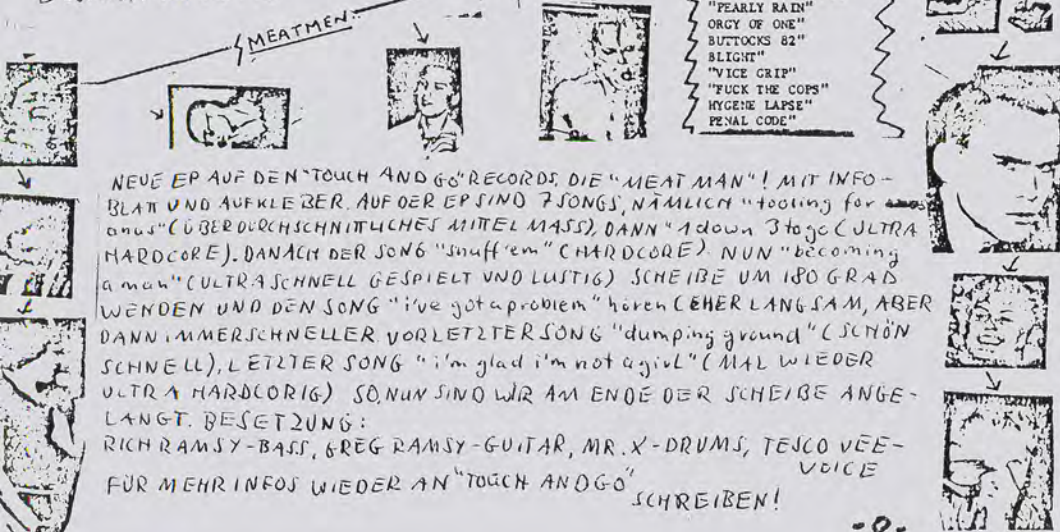 MEATMEN:
"PEARLY RAIN"
ORGY OF ONE"
BUTTOCKS 82"
BLIGHT"
"VICE GRIP"
"FUCK THE COPS"
HYGENE LAPSE"
PENAL CODE"
NEUE EP AUF DEN "TOUCH AND GO" RECORDS. DIE "MEAT MAN"! MIT INFO-
BLATT UND AUFKLEBER. AUF DER EP SIND 7 SONGS, NÄMLICH "tooling for
anus" (ÜBERDURCHSCHNITTLICHES MITTELMASS), DANN "1 down 3 to go (ULTRA
HARDCORE). DANACH DER SONG "snuff'em" (HARDCORE). NUN "becoming
a man" (ULTRASCHNELL GESPIELT UND LUSTIG) SCHEIBE UM 180 GRAD
WENDEN UND DEN SONG "i've got a problem" hören (EHER LANGSAM, ABER
DANN IMMERSCHNELLER. VORLETZTER SONG "dumping ground" (SCHÖN
SCHNELL), LETZTER SONG "i'm glad i'm not a girl" (MAL WIEDER
ULTRA HARDCORIG) SO, NUN SIND WIR AM ENDE DER SCHEIBE ANGE-
LANGT. BESETZUNG:
RICH RAMSY-BASS, GREG RAMSY-GUITAR, MR. X-DRUMS, TESCO VEE-
VOICE
FÜR MEHR INFOS WIEDER AN "TOUCH AND GO"
SCHREIBEN!